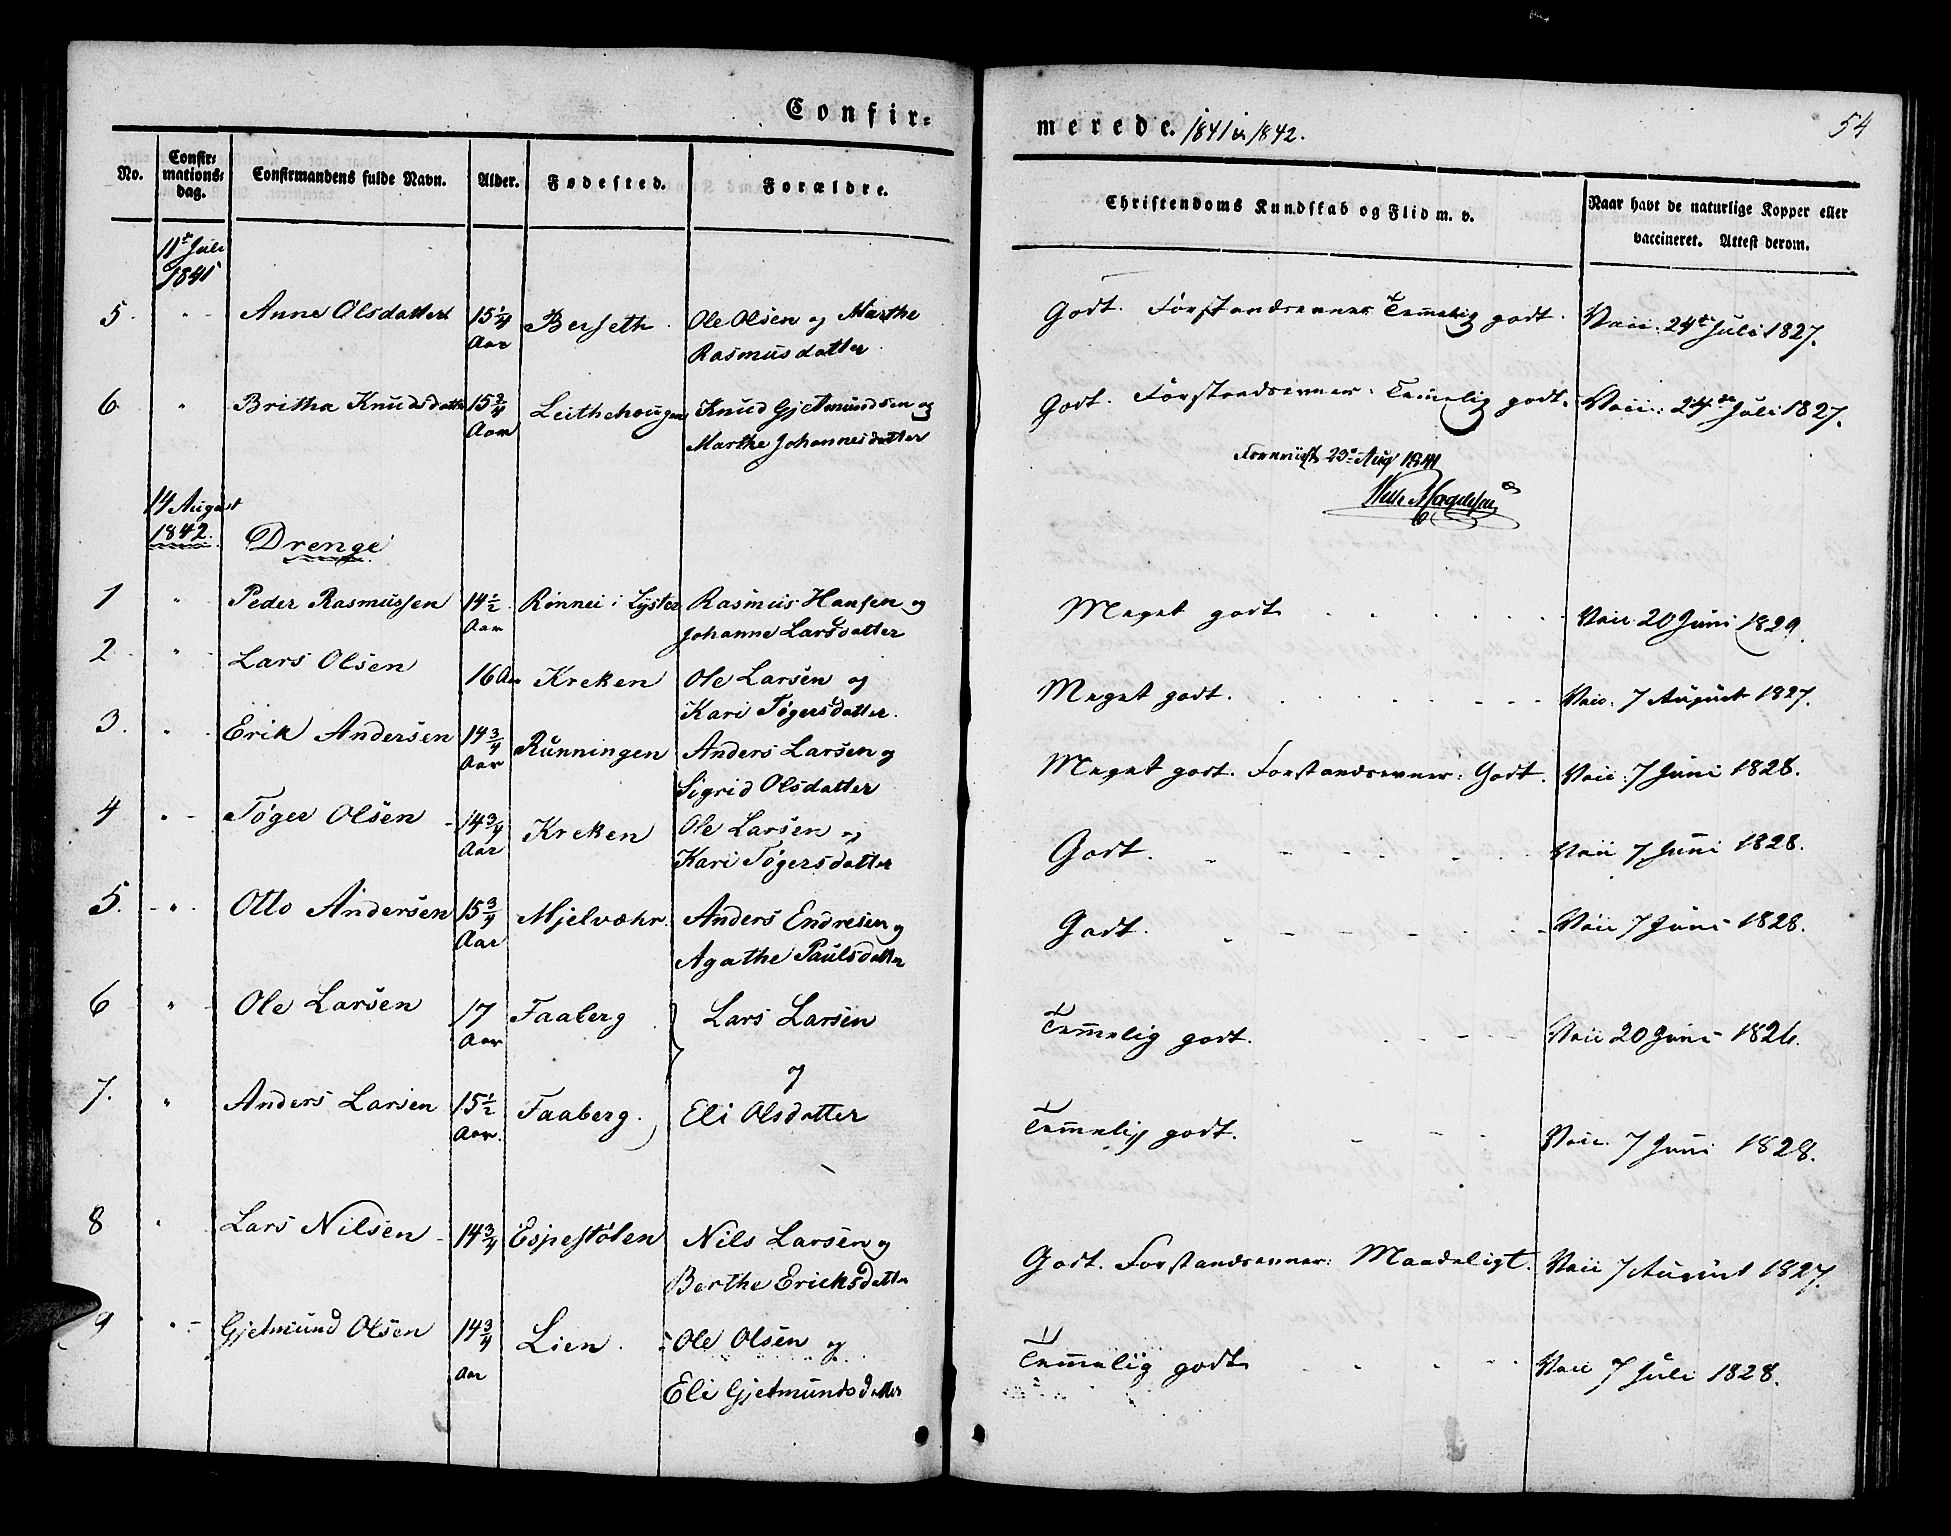 Confir=
merede. 1841 & 1842.
54
No.
Confir=
mations=
dag.
Confirmandens fulde Navn.
Alder.
Fødested.
Forældre.
Christendoms Kundskab og Flid m. v.
Naar havt de naturlige Kopper eller
vaccineret. Attest derom.
11te Juli
1841
5. " Anne Olsdatter 15 1/4 Berseth. Ole Olsen og Marthe Godt. Forstandsevner Temmelig godt. Vacc: 24de Juli 1827.
Aar Rasmusdatter
6 " Britha Knudsdatter 15 3/4 Leithehougen Knud Gjetmundsen og Godt. Forstandsevner. Temmelig godt. Vacc: 24de Juli 1827.
Aar Marthe Johannesdatter
23de Aug 1841
14 August
1842. Drenge
1 " Peder Rasmussen 14 1/2 Rønnei i Lyster Rasmus Hansen og Meget godt Vacc 20 Juni 1829.
Aar Johanne Larsdatter
2 " Lars Olsen 16 Aar Kreken Ole Larsen og Meget godt. Vacc: 7 August 1827.
Kari Tøgersdatter.
3. " Erik Andersen 14 3/4 Rünningen Anders Larsen og Meget godt. Forstandsevner: Godt. Vacc: 7 Juni 1828.
Aar Sigrid Olsdatter
4 " Tøger Olsen 14 3/4 Kreken Ole Larsen og Godt. Vacc 7 Juni 1828.
Aar Kari Tøgersdatter
5. " Otto Andersen 15 3/4 Mjelvæhr. Anders Endresen og Godt. Vacc 7 Juni 1828.
Aar Agathe Paulsdatter
6 " Ole Larsen 17 Faaberg Lars Larsen Temmelig godt. Vacc 20 Juni 1826.
Aar
og
7. " Anders Larsen 15 1/2 Faaberg. Eli Olsdatter Temmelig godt. Vacc. 7 Juni 1828.
Aar.
8 " Lars Nilsen 14 3/4 Espestølen Nils Larsen og Godt. Forstandsevner: Maadeligt. Vacc 7 August 1827.
Berthe Ericksdatter
9 " Gjetmund Olsen 14 3/4 Lien. Ole Olsen og Temmelig godt Vacc 7 Juli 1828.
Aar Eli Gjetmundsdatter